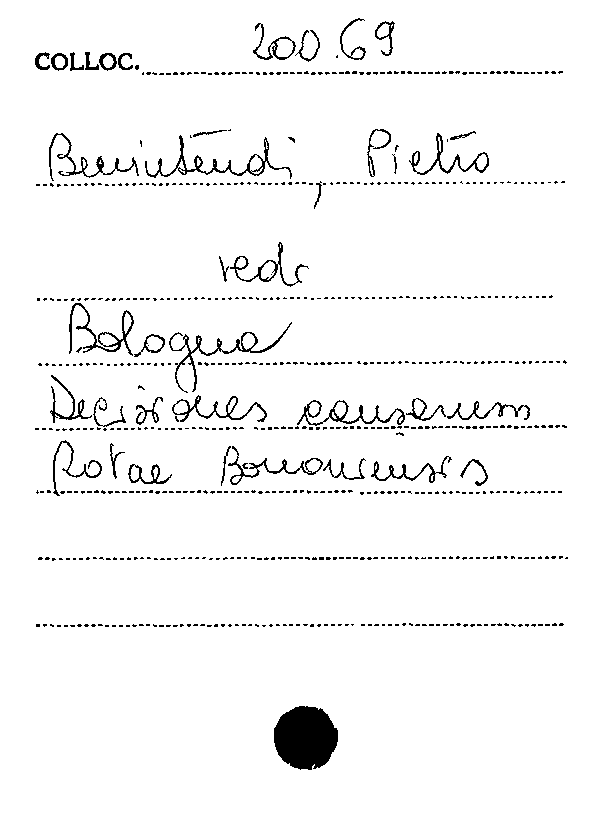 COLLOC. 200.69
Benintendi, Pietro
vedi
Bologna
Decisiones causarum
Rotae Bononiensis